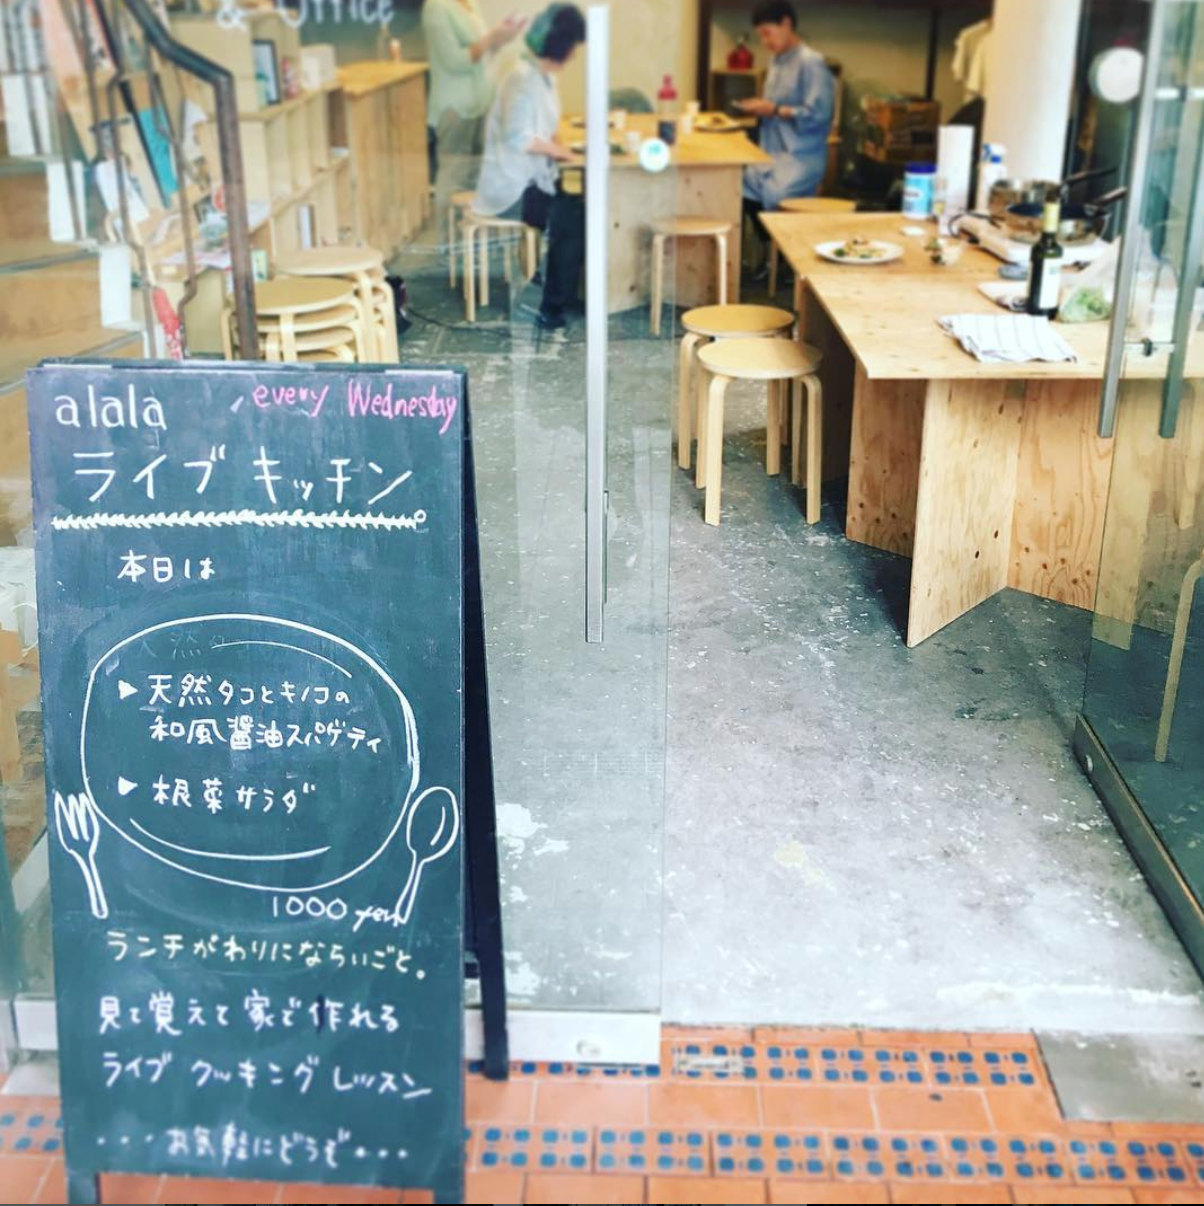 & Office
alala
every Wednesday
ライブ キッチン
本日は
▶ 天然タコとキノコの
和風醤油スパゲティ
▶ 根菜サラダ
1000 yen
ランチがわりにならいごと。
見て覚えて家で作れる
ライブ クッキング レッスン
・・・お気軽にどうぞ・・・